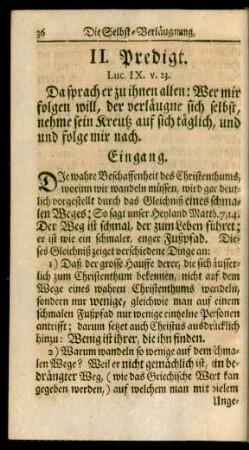 36 Die Selbst-Verläugnung,
II. Predigt.
Luc. IX. v. 23.
Da sprach er zu ihnen allen: Wer mir
folgen will, der verläugne sich selbst,
nehme sein Kreutz auf sich täglich, und
und folge mir nach.
Eingang.
Die wahre Beschaffenheit des Christenthums,
worinn wir wandeln müssen, wird gar deut-
lich vorgestellt durch das Gleichniß eines schma-
len Weges; So sagt unser Heyland Matth. 7,14.
Der Weg ist schmal, der zum Leben führet;
er ist wie ein schmaler, enger Fußpfad. Die-
ses Gleichniß zeiget verschiedene Dinge an:
1) Daß der große Hauffe derer, die sich äusser-
lich zum Christenthum bekennen, nicht auf dem
Wege eines wahren Christenthums wandeln,
sondern nur wenige, gleichwie man auf einem
schmalen Fußpfad nur wenige eintzelne Personen
antrifft; darum setzt auch Christus ausdrücklich
hinzu: Wenig ist ihrer, die ihn finden.
2) Warum wandeln so wenige auf dem schma-
len Wege? Weil er nicht gemächlich ist, ein be-
drängter Weg, (wie das Griechische Wort kan
gegeben werden,) auf welchem man mit vielem
Unge-